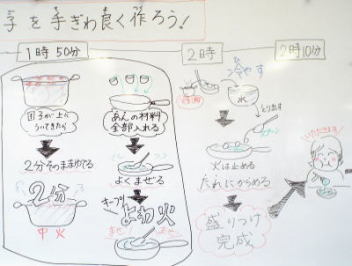 子を手ぎわ良く作ろう!
1時50分
2時
2時10分
団子が上に
ういてきたら
2分そのままゆでる
2分
中火
あんの材料
全部入れる
よくまぜる
キープ
よわ火
冷やす
水
とり出す
火は止める
たれにからめる
盛りつけ
完成